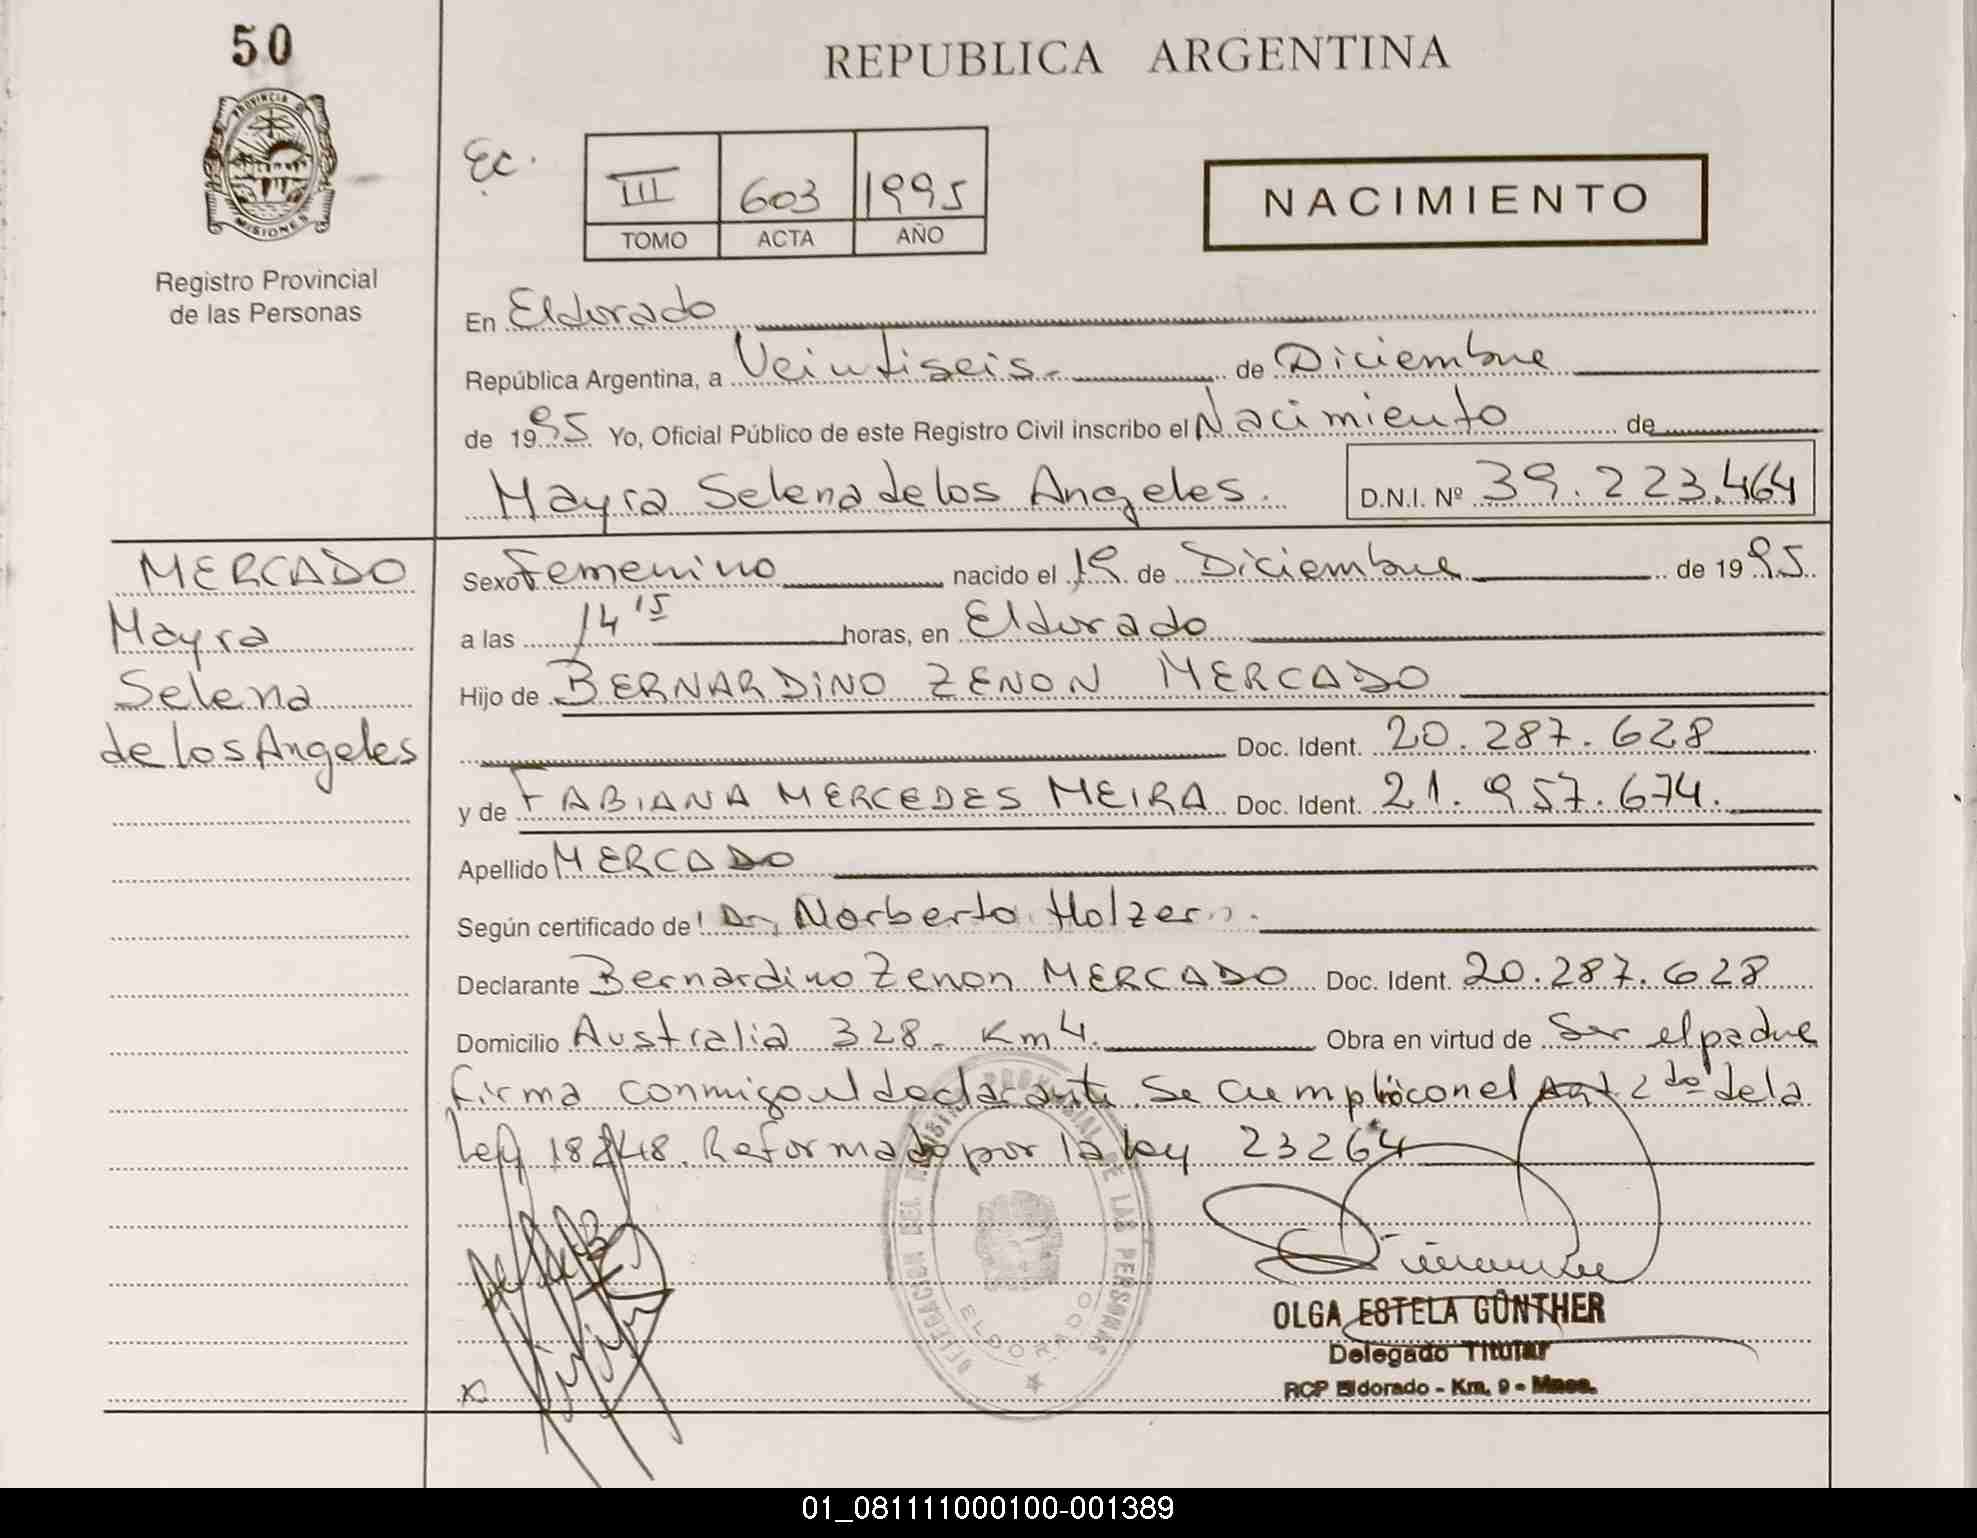 50
REPUBLICA ARGENTINA
PROVINCIA DE
MISIONES
Registro Provincial
de las Personas
Ec.
III 603 1995
TOMO ACTA AÑO
NACIMIENTO
En Eldorado
República Argentina, a Veintiseis.- de Diciembre
de 1995 Yo, Oficial Público de este Registro Civil inscribo el Nacimiento de
Mayra Selena de los Angeles. D.N.I. Nº 39.223.464
MERCADO
Mayra
Selena
de los Angeles
Sexo Femenino nacido el 19 de Diciembre de 1995
a las 14 15 horas, en Eldorado
Hijo de BERNARDINO ZENON MERCADO
Doc. Ident. 20.287.628
y de FABIANA MERCEDES MEIRA Doc. Ident. 21.957.674.
Apellido MERCADO
Según certificado de Dr, Norberto Holzer
Declarante Bernardino Zenon MERCADO Doc. Ident. 20.287.628
Domicilio Australia 328- Km 4. Obra en virtud de Ser el padre
firma conmigo el declarante. Se cumplio con el Art 2do de la
Ley 18248. Reformado por la ley 23264
DELEGACION DEL REGISTRO PROVINCIAL DE LAS PERSONAS
ELDORADO
x
OLGA ESTELA GÜNTHER
Delegado Titular
RCP Eldorado - Km. 9 - Mnes.
01_081111000100-001389